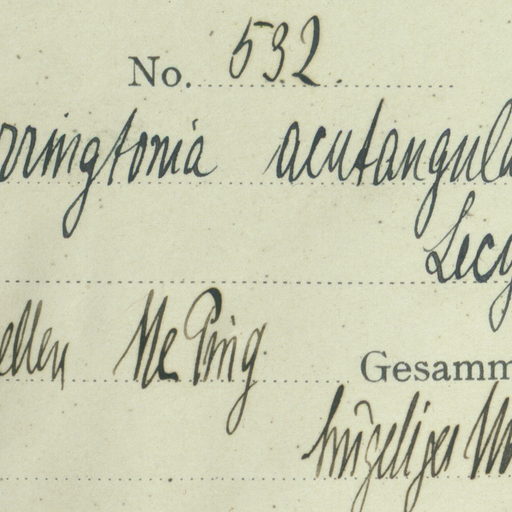 No. 532.
rringtonia acutangula
Lecy
ellen Me Ping Gesamm
hügeliger